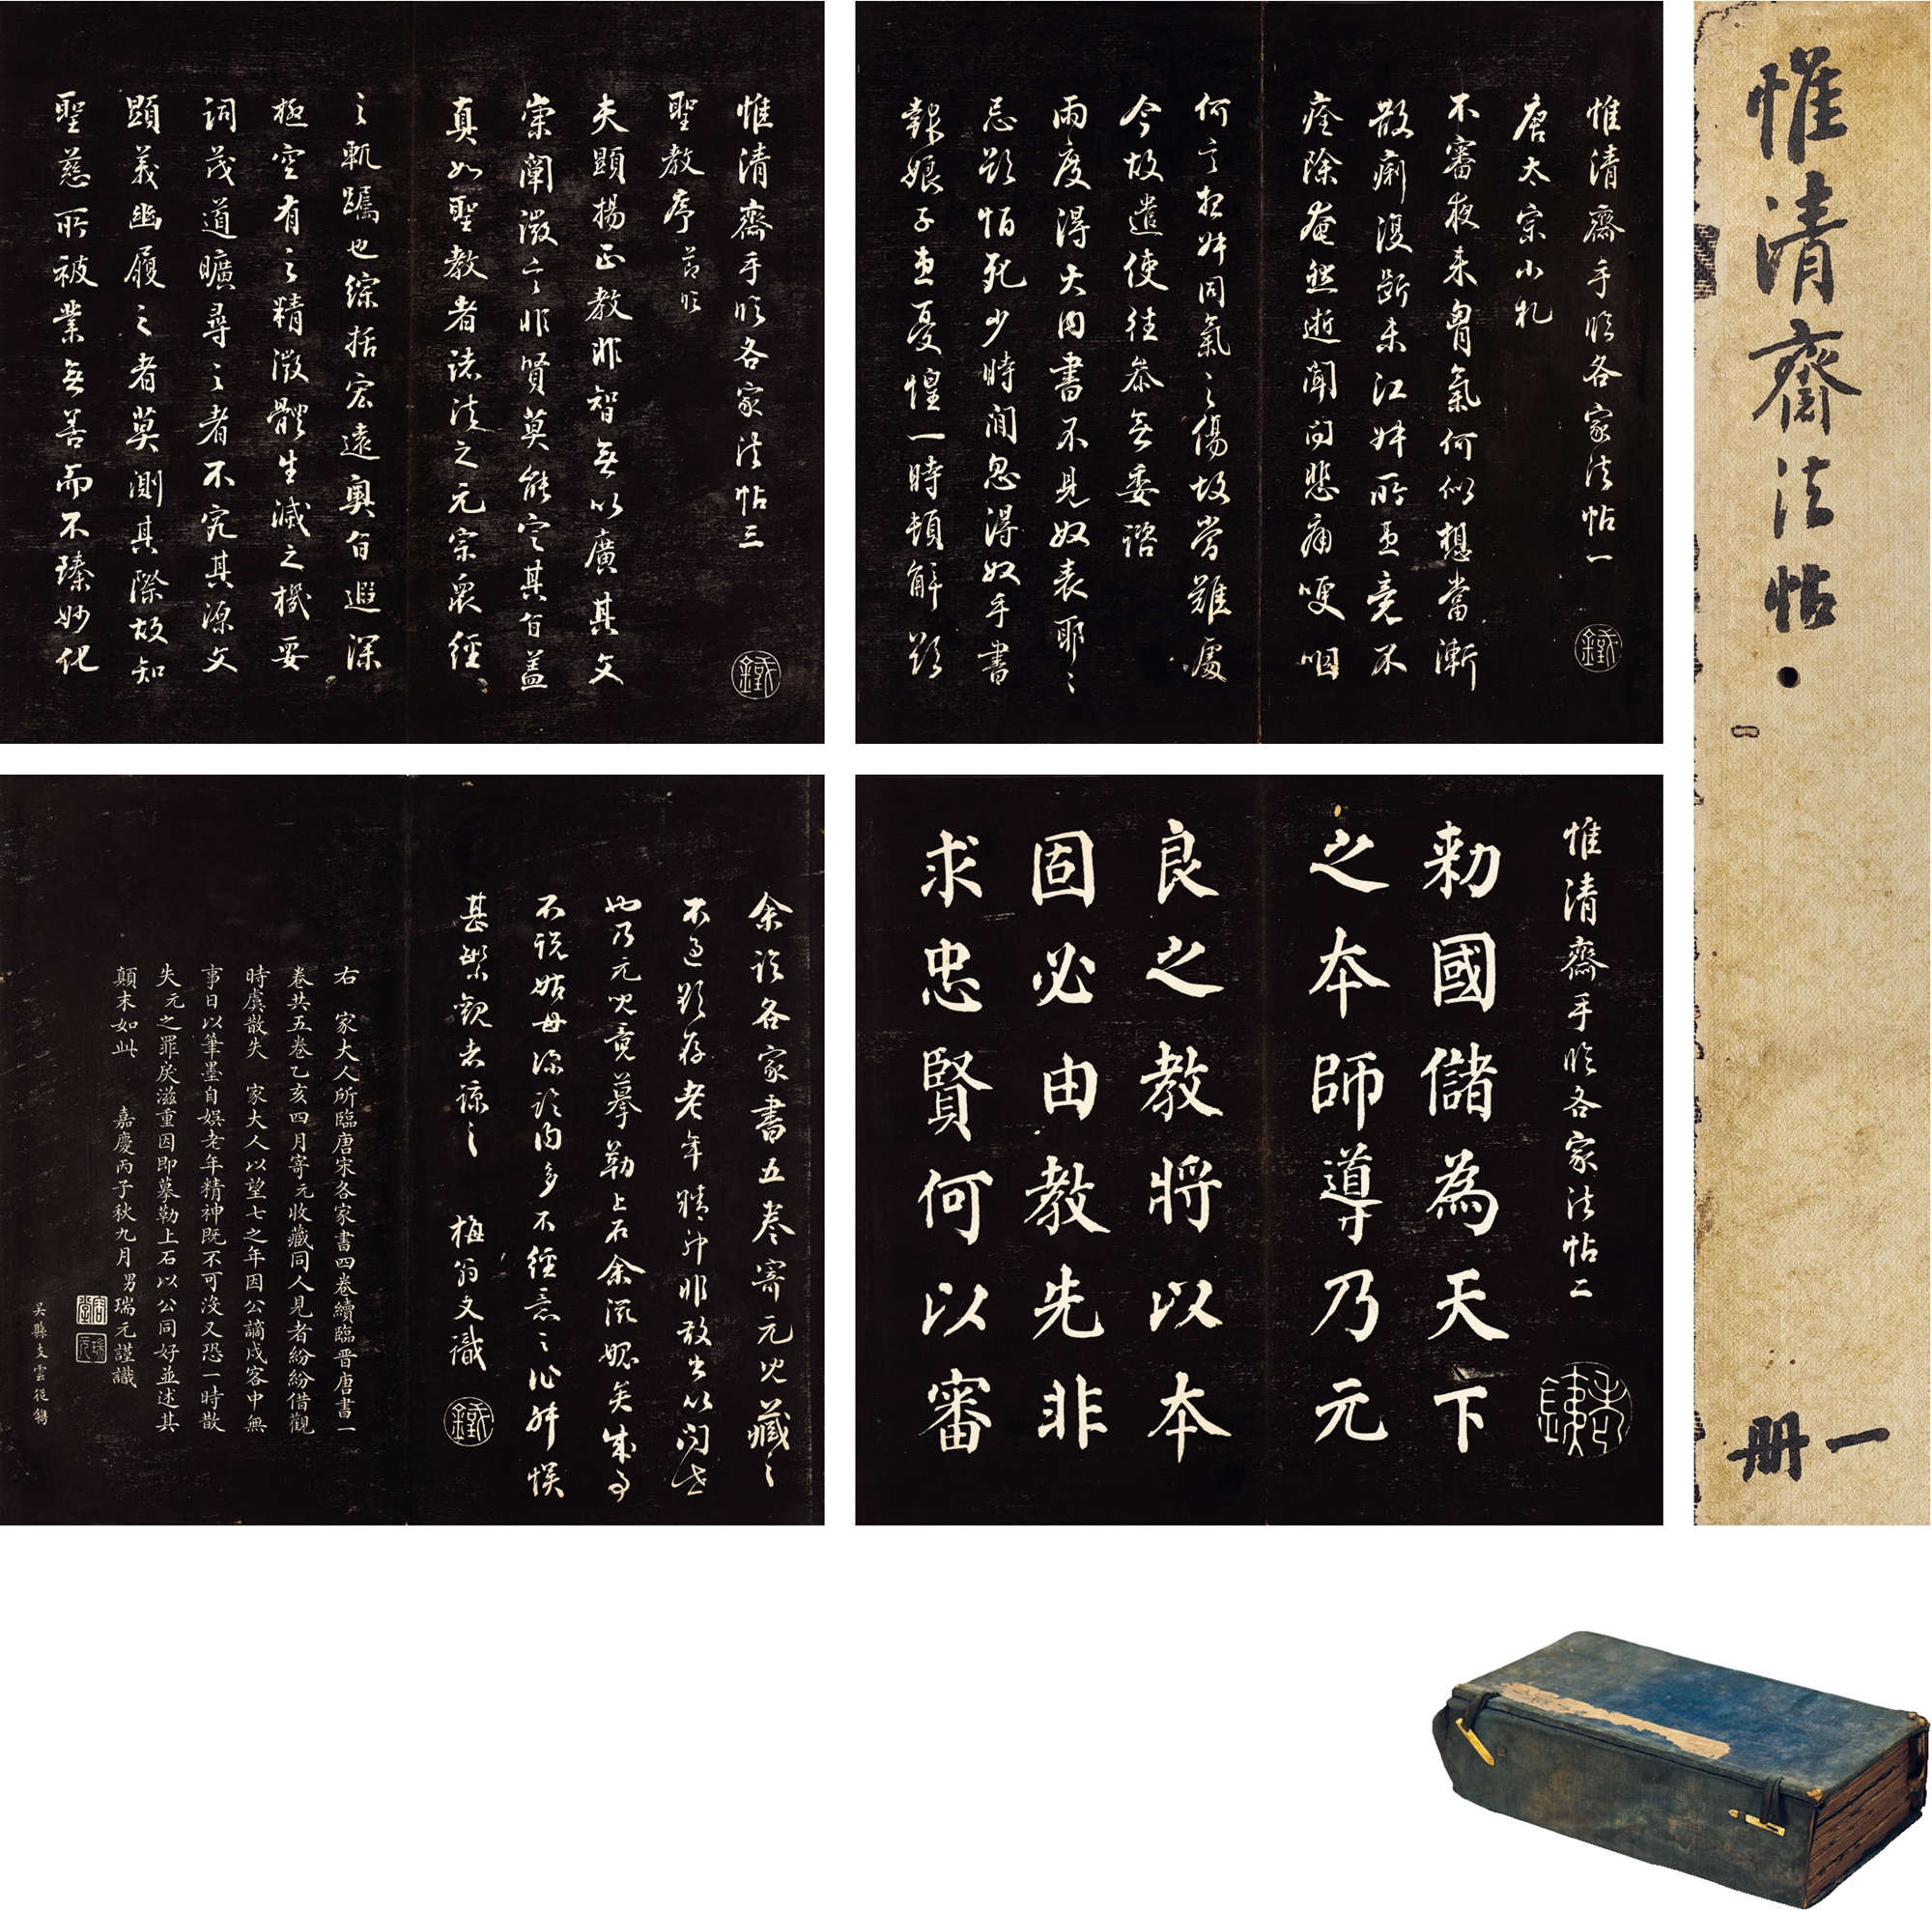 惟清齋法帖
一册
惟清齋手臨各家法帖一
唐太宗小札
不審夜來胷氣何似想當漸
散痢復斷未江妹所患竟不
痊除奄然逝聞問悲痛哽咽
何言想妹同氣之傷故當難處
今故遣使往參無委諮
兩度得大內書不見奴表耶耶
忌欲恒死少時間忽得奴手書
報娘子患憂惶一時頓解欲
惟清齋手臨各家法帖三
聖教序 節臨
夫顯揚正教非智無以廣其文
崇闡微言非賢莫能定其旨蓋
真如聖教者諸法之元宗衆經
之軌躅也綜括宏遠奧旨遐深
極空有之精微體生滅之機要
詞茂道曠尋之者不究其源文
顯義幽履之者莫測其際故知
聖慈所被業無善而不臻妙化
惟清齋手臨各家法帖二
勑國儲為天下
之本師導乃元
良之教將以本
固必由教先非
求忠賢何以審
余臨各家書五卷寄元兒藏之
不過欲存老年精神非敢出以問世
也乃元兒竟摹勒上石余滋媿矣
甚樂觀者諒之 梅翁又識
右 家大人所臨唐宋各家書四卷續臨晉唐書一
卷共五卷乙亥四月寄元收藏同人見者紛紛借觀
時虞散失 家大人以望七之年因公謫戍客中無
事日以筆墨自娛老年精神既不可沒又恐一時散
失元之罪戾滋重因即摹勒上石以公同好並述其
顛末如此 嘉慶丙子秋九月男瑞元謹識
吳縣支雲從鐫